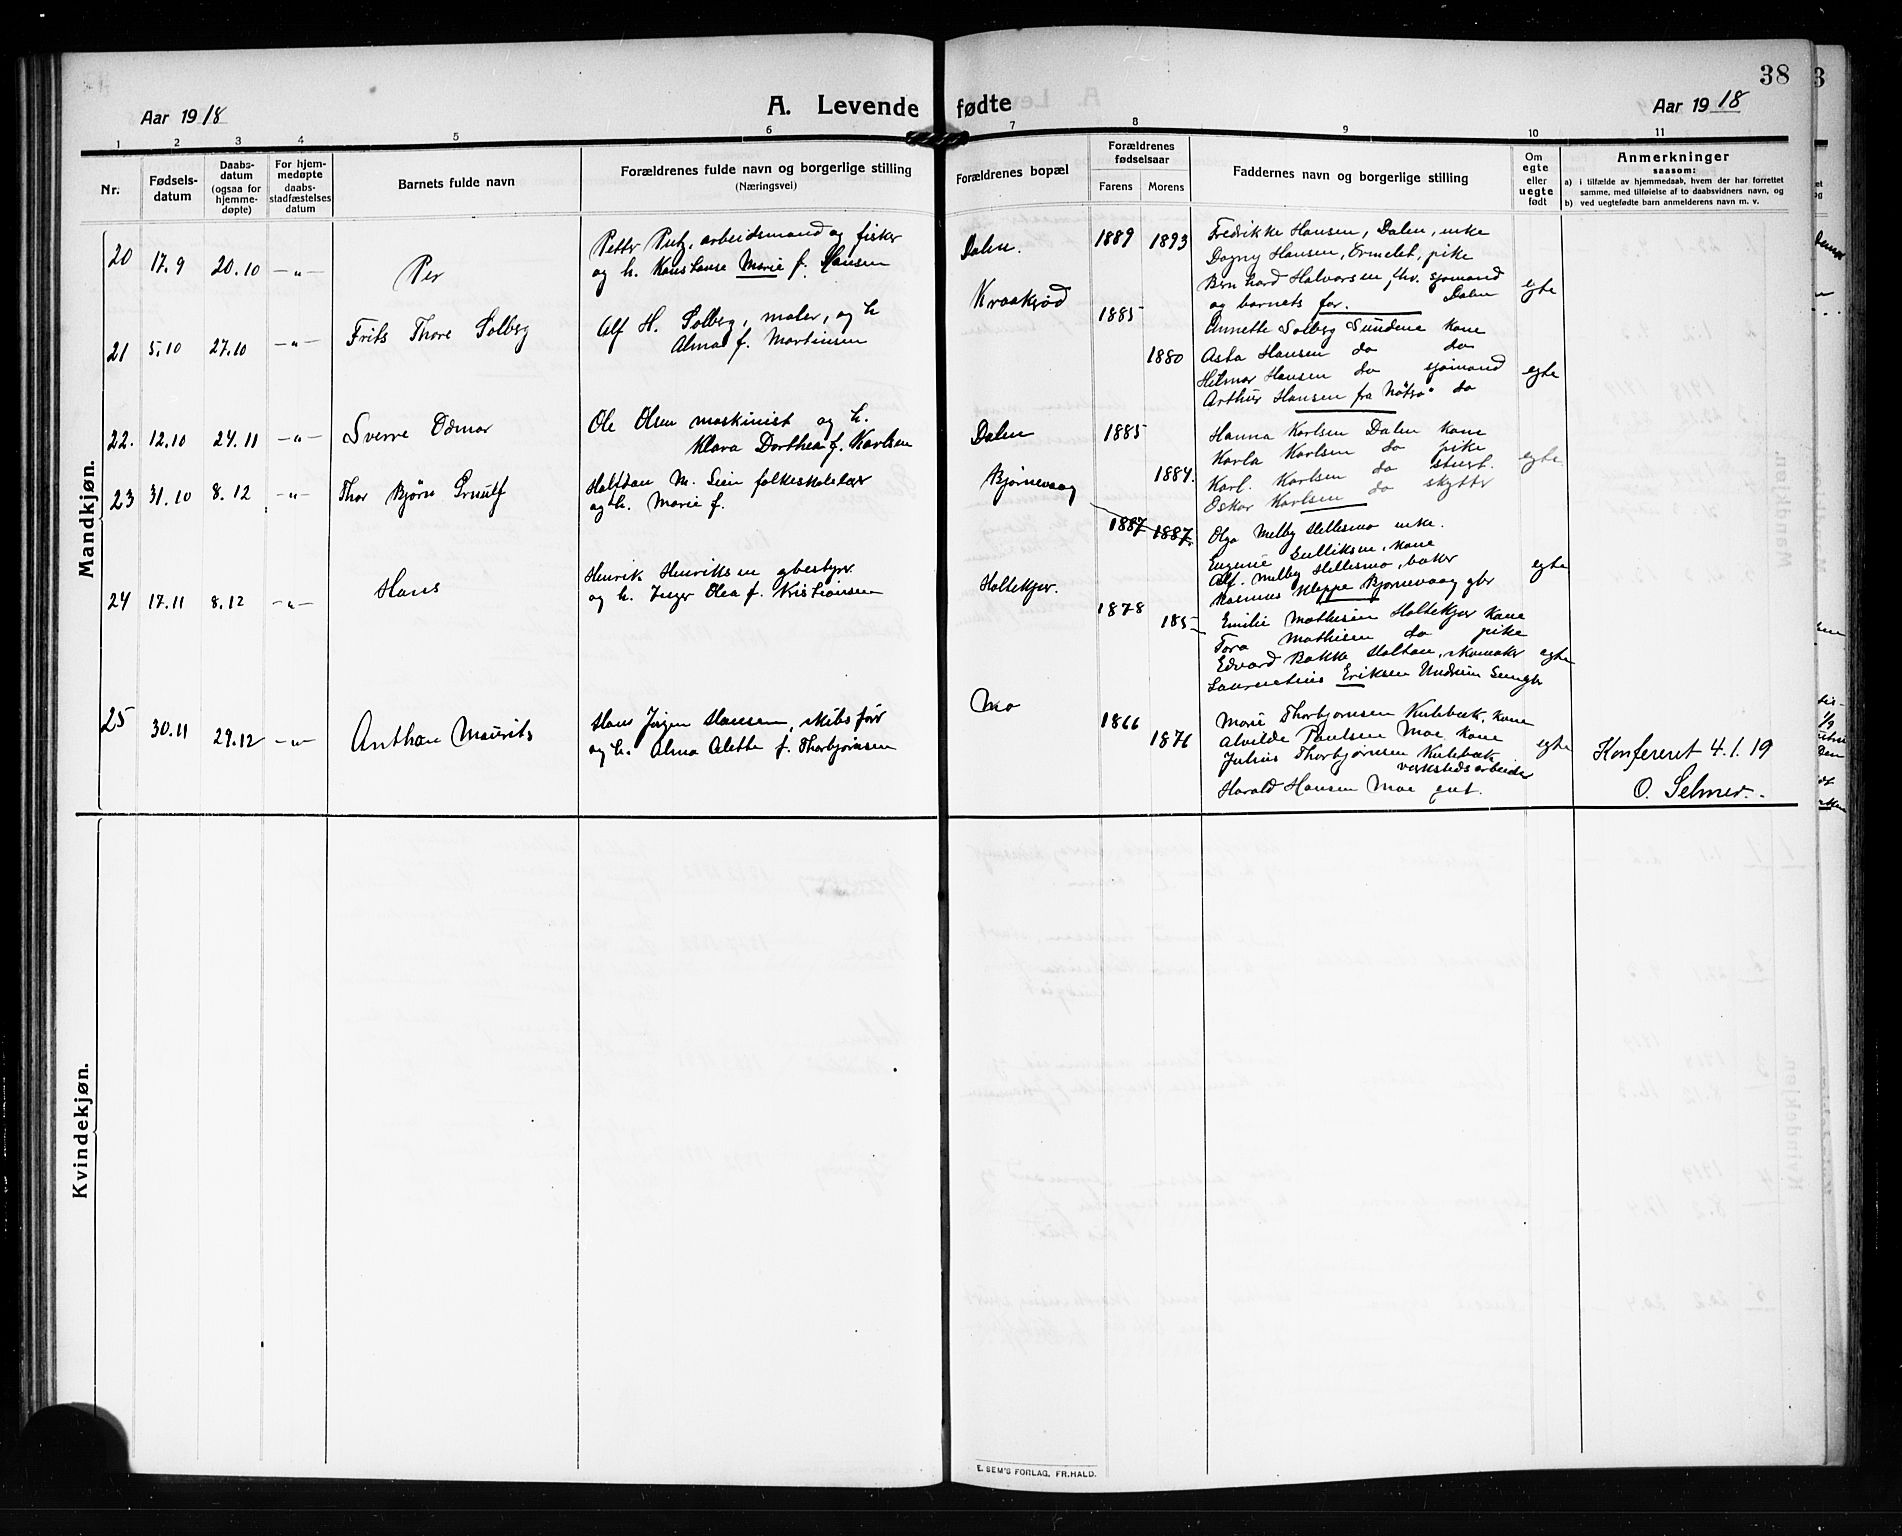 38
Aar 1918
A. Levende fødte
Aar 1918
1 2 3 4 5 6 7 8 9 10 11
Nr.
Fødsels-
datum
Daabs-
datum
(ogsaa for
hjemme-
døpte)
For hjem-
medøpte
daabs-
stadfæstelses
datum
Barnets fulde navn
Forældrenes fulde navn og borgerlige stilling
(Næringsvei)
Forældrenes bopæl
Forældrenes
fødselsaar
Farens Morens
Faddernes navn og borgerlige stilling
Om
egte
eller
uegte
født
Anmerkninger
saasom:
a) i tilfælde av hjemmedaab, hvem der har forrettet
samme, med tilføielse av to daabsvidners navn, og
b) ved uegtefødte barn anmelderens navn m. v.
Mandkjøn.
20 17.9 20.10 -„- Per
Petter Putz, arbeidsmand og fisker
og h. Konstanse Marie f. Hansen
Dalen. 1889 1893
Fredrikke Hansen, Dalen, enke
Dagny Hansen, Ormelet, pike
Bernhard Halvorsen, fhv. sjømand
og barnets far. Dalen
egte
21 5.10 27.10 -„- Frits Thore Solberg
Alf H. Solberg, maler, og h
Alma f. Martinsen
Kraakjød 1885 1880
Annette Solberg Sundene kone
Asta Hansen do do
Hilmar Hansen do sjømand
Arthur Hansen fra Nøtrø do
egte
22. 12.10 24.11 -„- Sverre Odmar
Ole Olsen maskinist og h.
Klara Dorthea f. Karlsen
Dalen 1885 1884.
Hanna Karlsen Dalen kone
Karla Karlsen do pike
Karl. Karlsen do stuert.
Oskar Karlsen do skytter
egte
23 31.10 8.12 -„- Thor Bjørn
Halfdan M. Lein folkeskolelærer
og h. Marie f.
Bjørnevaag 1887 1887
Olga Melby Hellesmo enke.
Eugenie Gulliksen, kone
Alf. Melby Hellesmo, baker
Rasmus Kleppe Bjørnevaag gbr
egte
24 17.11 8.12 -„- Hans
Henrik Henriksen gbestyrer
og h. Inger Olea f. Kristiansen
Holtekjær. 1878 185
Emilie Mathisen Holtekjær kone
Tora Mathisen do pike
Edvard Bakke Holtan, skomaker
Laurentius Eriksen Undrum
egte
25 30.11 29.12 -„- Anthon Mauritz
Hans Jørgen Hansen, skibsfør
og h. Alma Alette f. Thorbjørnsen
Mo 1866 1876
Marie Thorbjørnsen Kulebæk, kone
Alvilde Paulsen Moe kone
Julius Thorbjørnsen Kulebæk
verkstedsarbeider
Harald Hansen Moe gut.
egte
Konfereret 4.1.19
O. Selmer.
Kvindekjøn.
E. SEM'S FORLAG, FR.HALD.